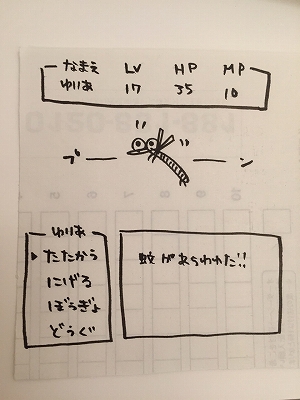 なまえ LV HP MP
ゆりあ 17 35 10
ブーーン
ゆりあ
たたかう
にげる
ぼうぎょ
どうぐ
蚊があらわれた!!